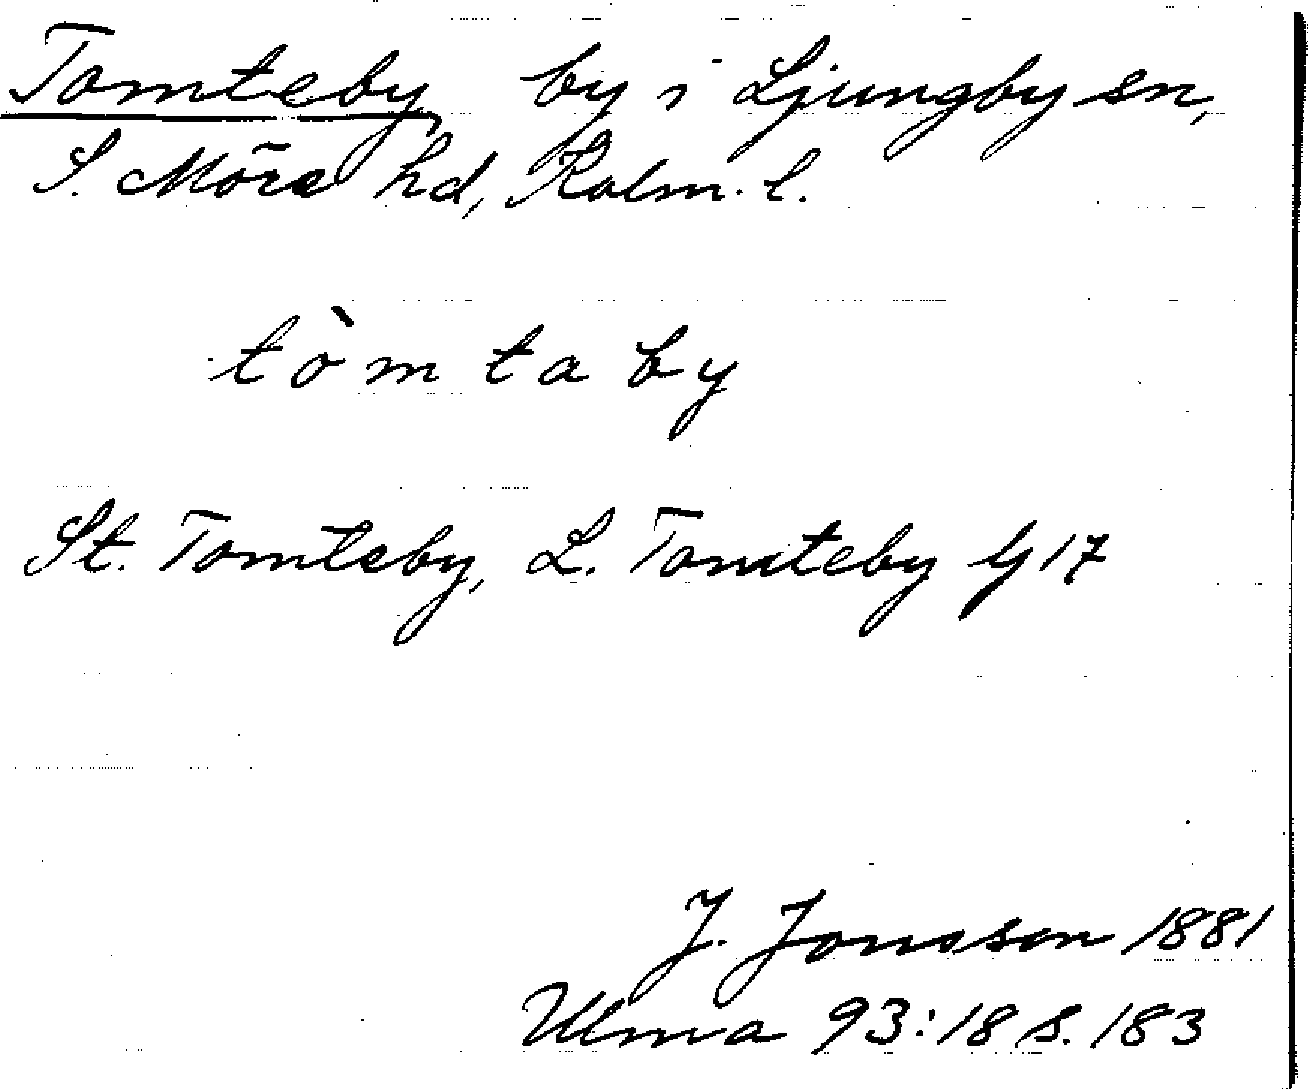 Tomteby, by i Ljungby sn,
S. Möre hd, Kalm. l.
tòmtaby
St. Tomteby, L. Tomteby G 17
J. Jonsson 1881
Ulma 93:18 s. 183